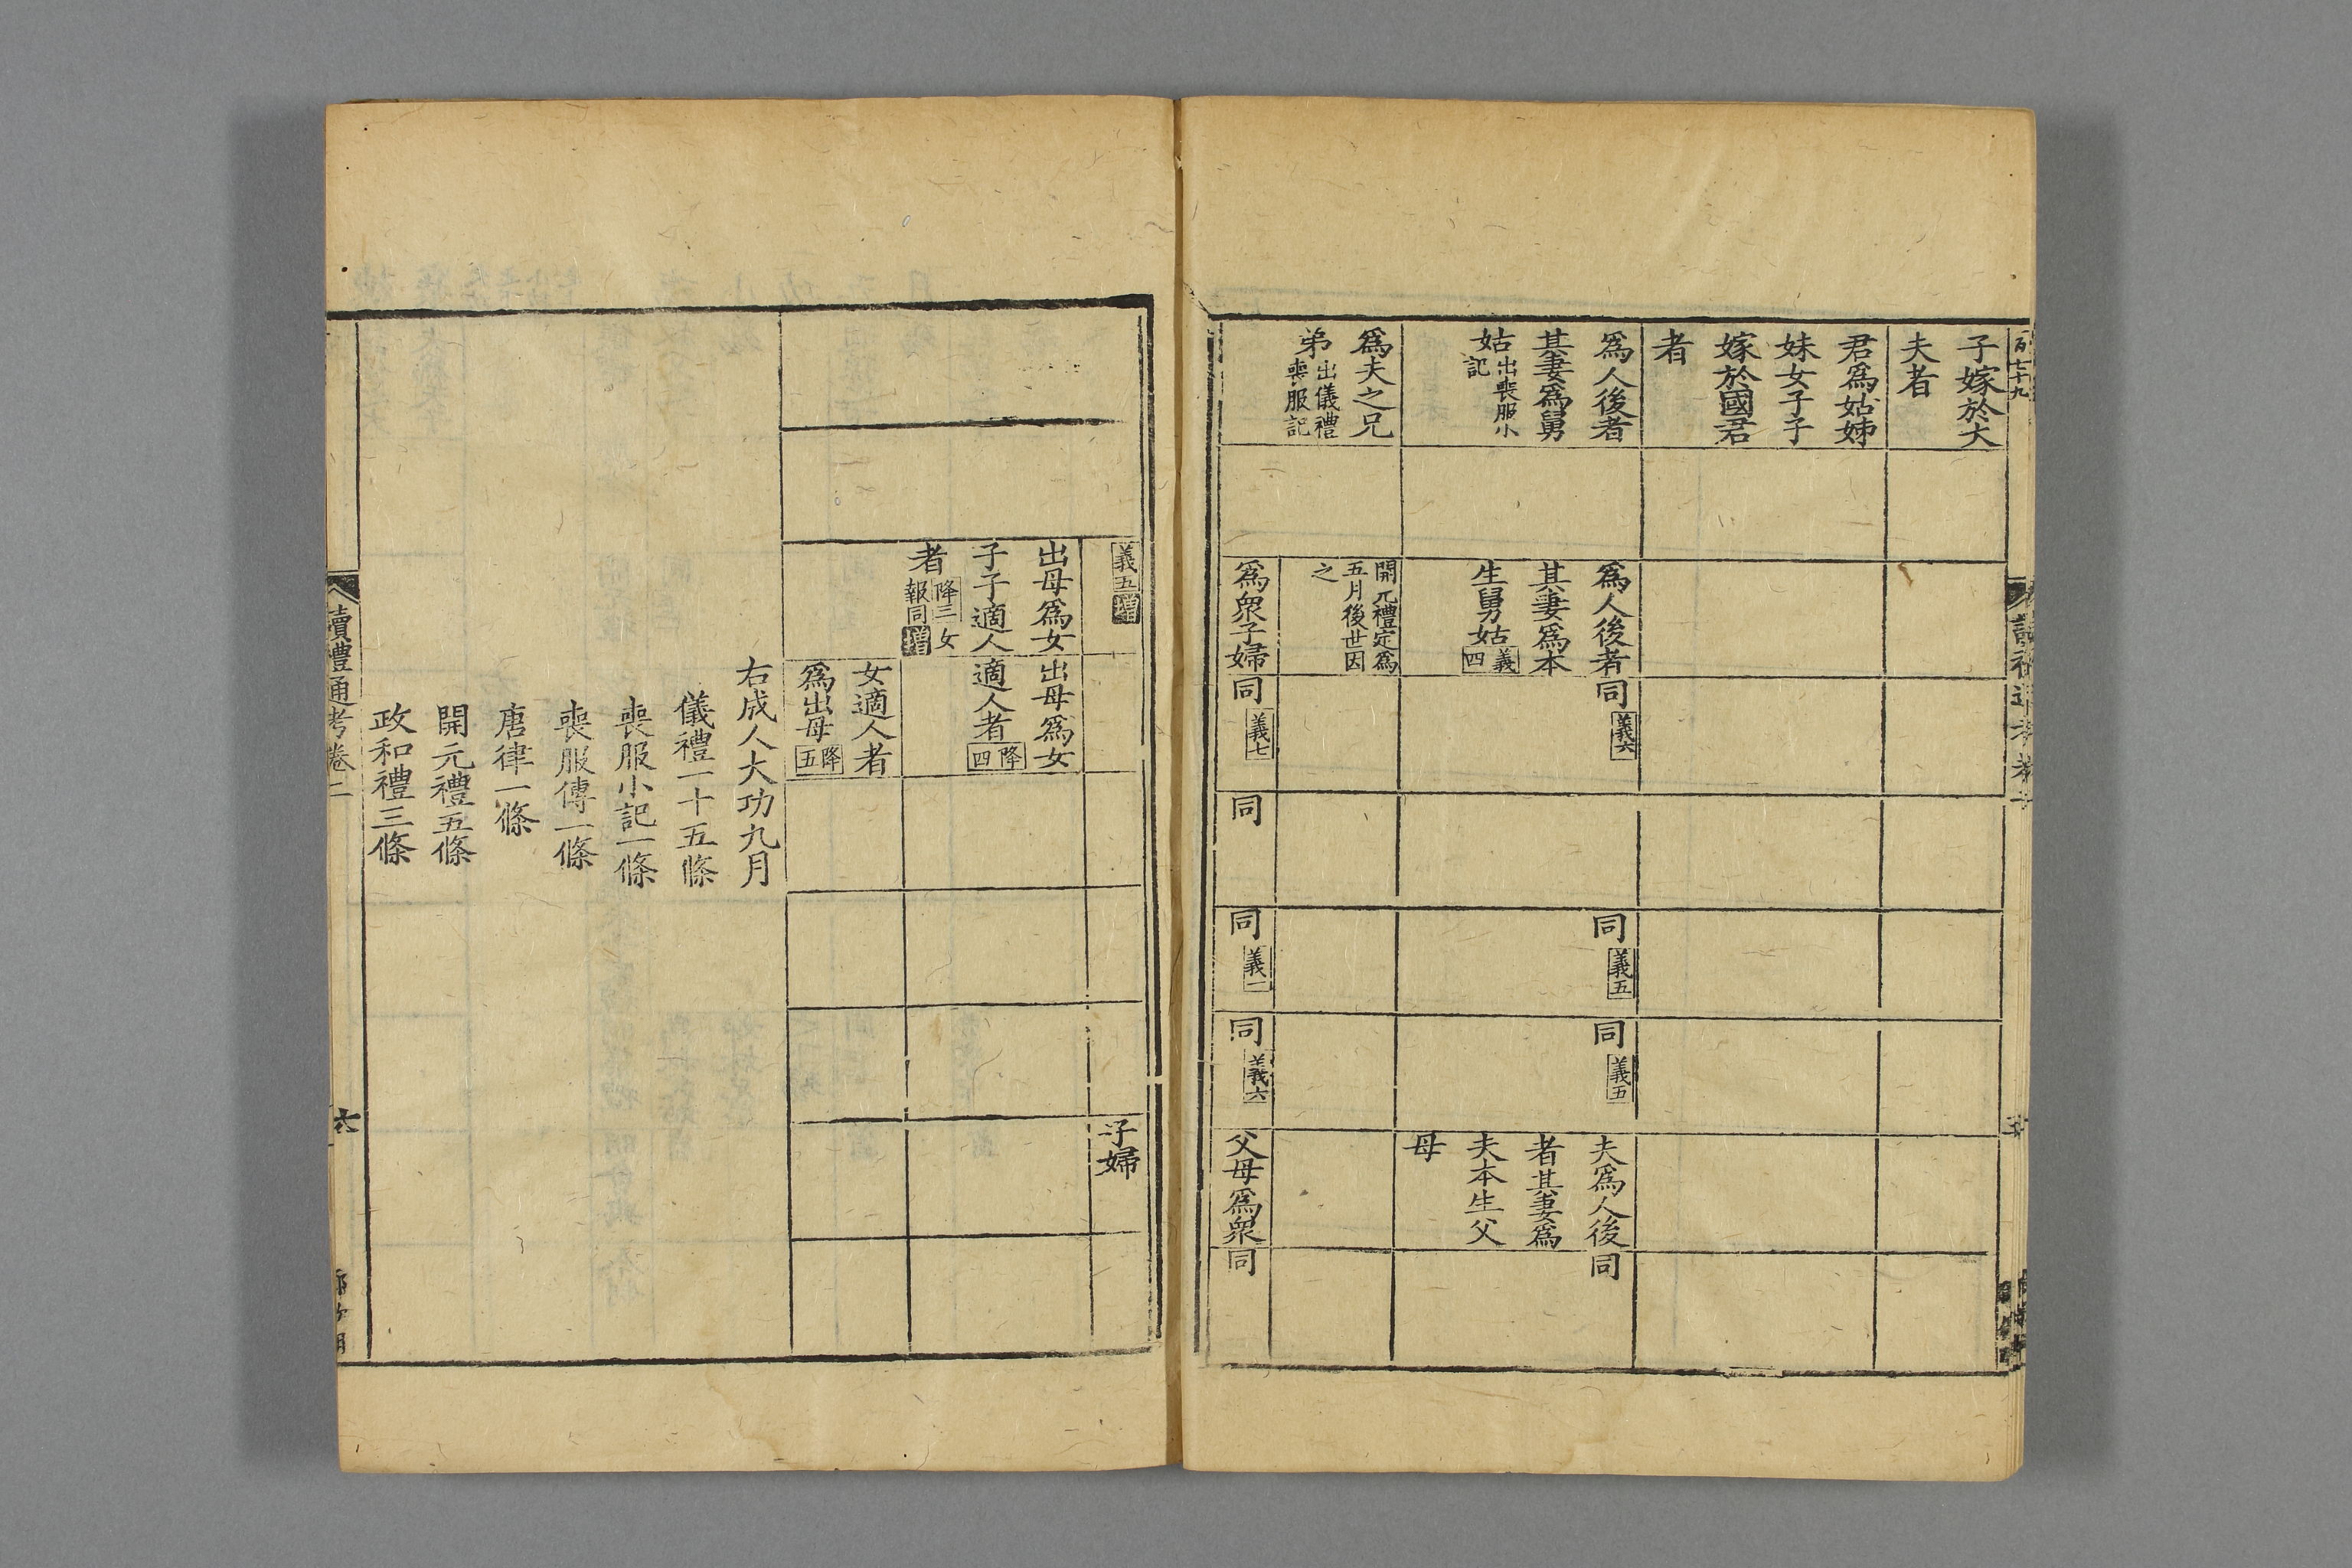 百七十九
子嫁於大
夫者
君為姑姊
妹女子子
嫁於國君
者
為人後者
其妻為舅
姑出喪服小
記
為夫之兄
弟出儀禮
喪服記
為人後者
其妻為本
生舅姑義四
開元禮定為
五月後世因
之
為衆子婦
同義六
同義七
同
同義五
同義一
同義五
同義六
夫為人後
者其妻為
夫本生父
母
父母為衆
同
同
義五增
出母為女
子子適人
者降三女
報同增
出母為女
適人者降四
女適人者
為出母降五
子婦
右成人大功九月
儀禮一十五條
喪服小記一條
喪服傳一條
唐律一條
開元禮五條
政和禮三條
讀禮通考卷二
六